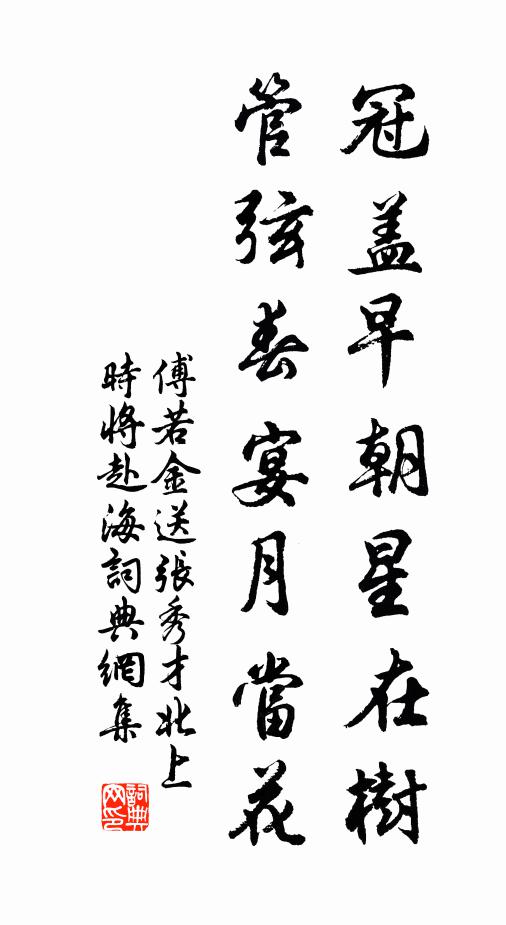 冠盖早朝星在樹
管弦春宴月當花
傅若金送張秀才北上
時將赴海詞典網集
詞典網印